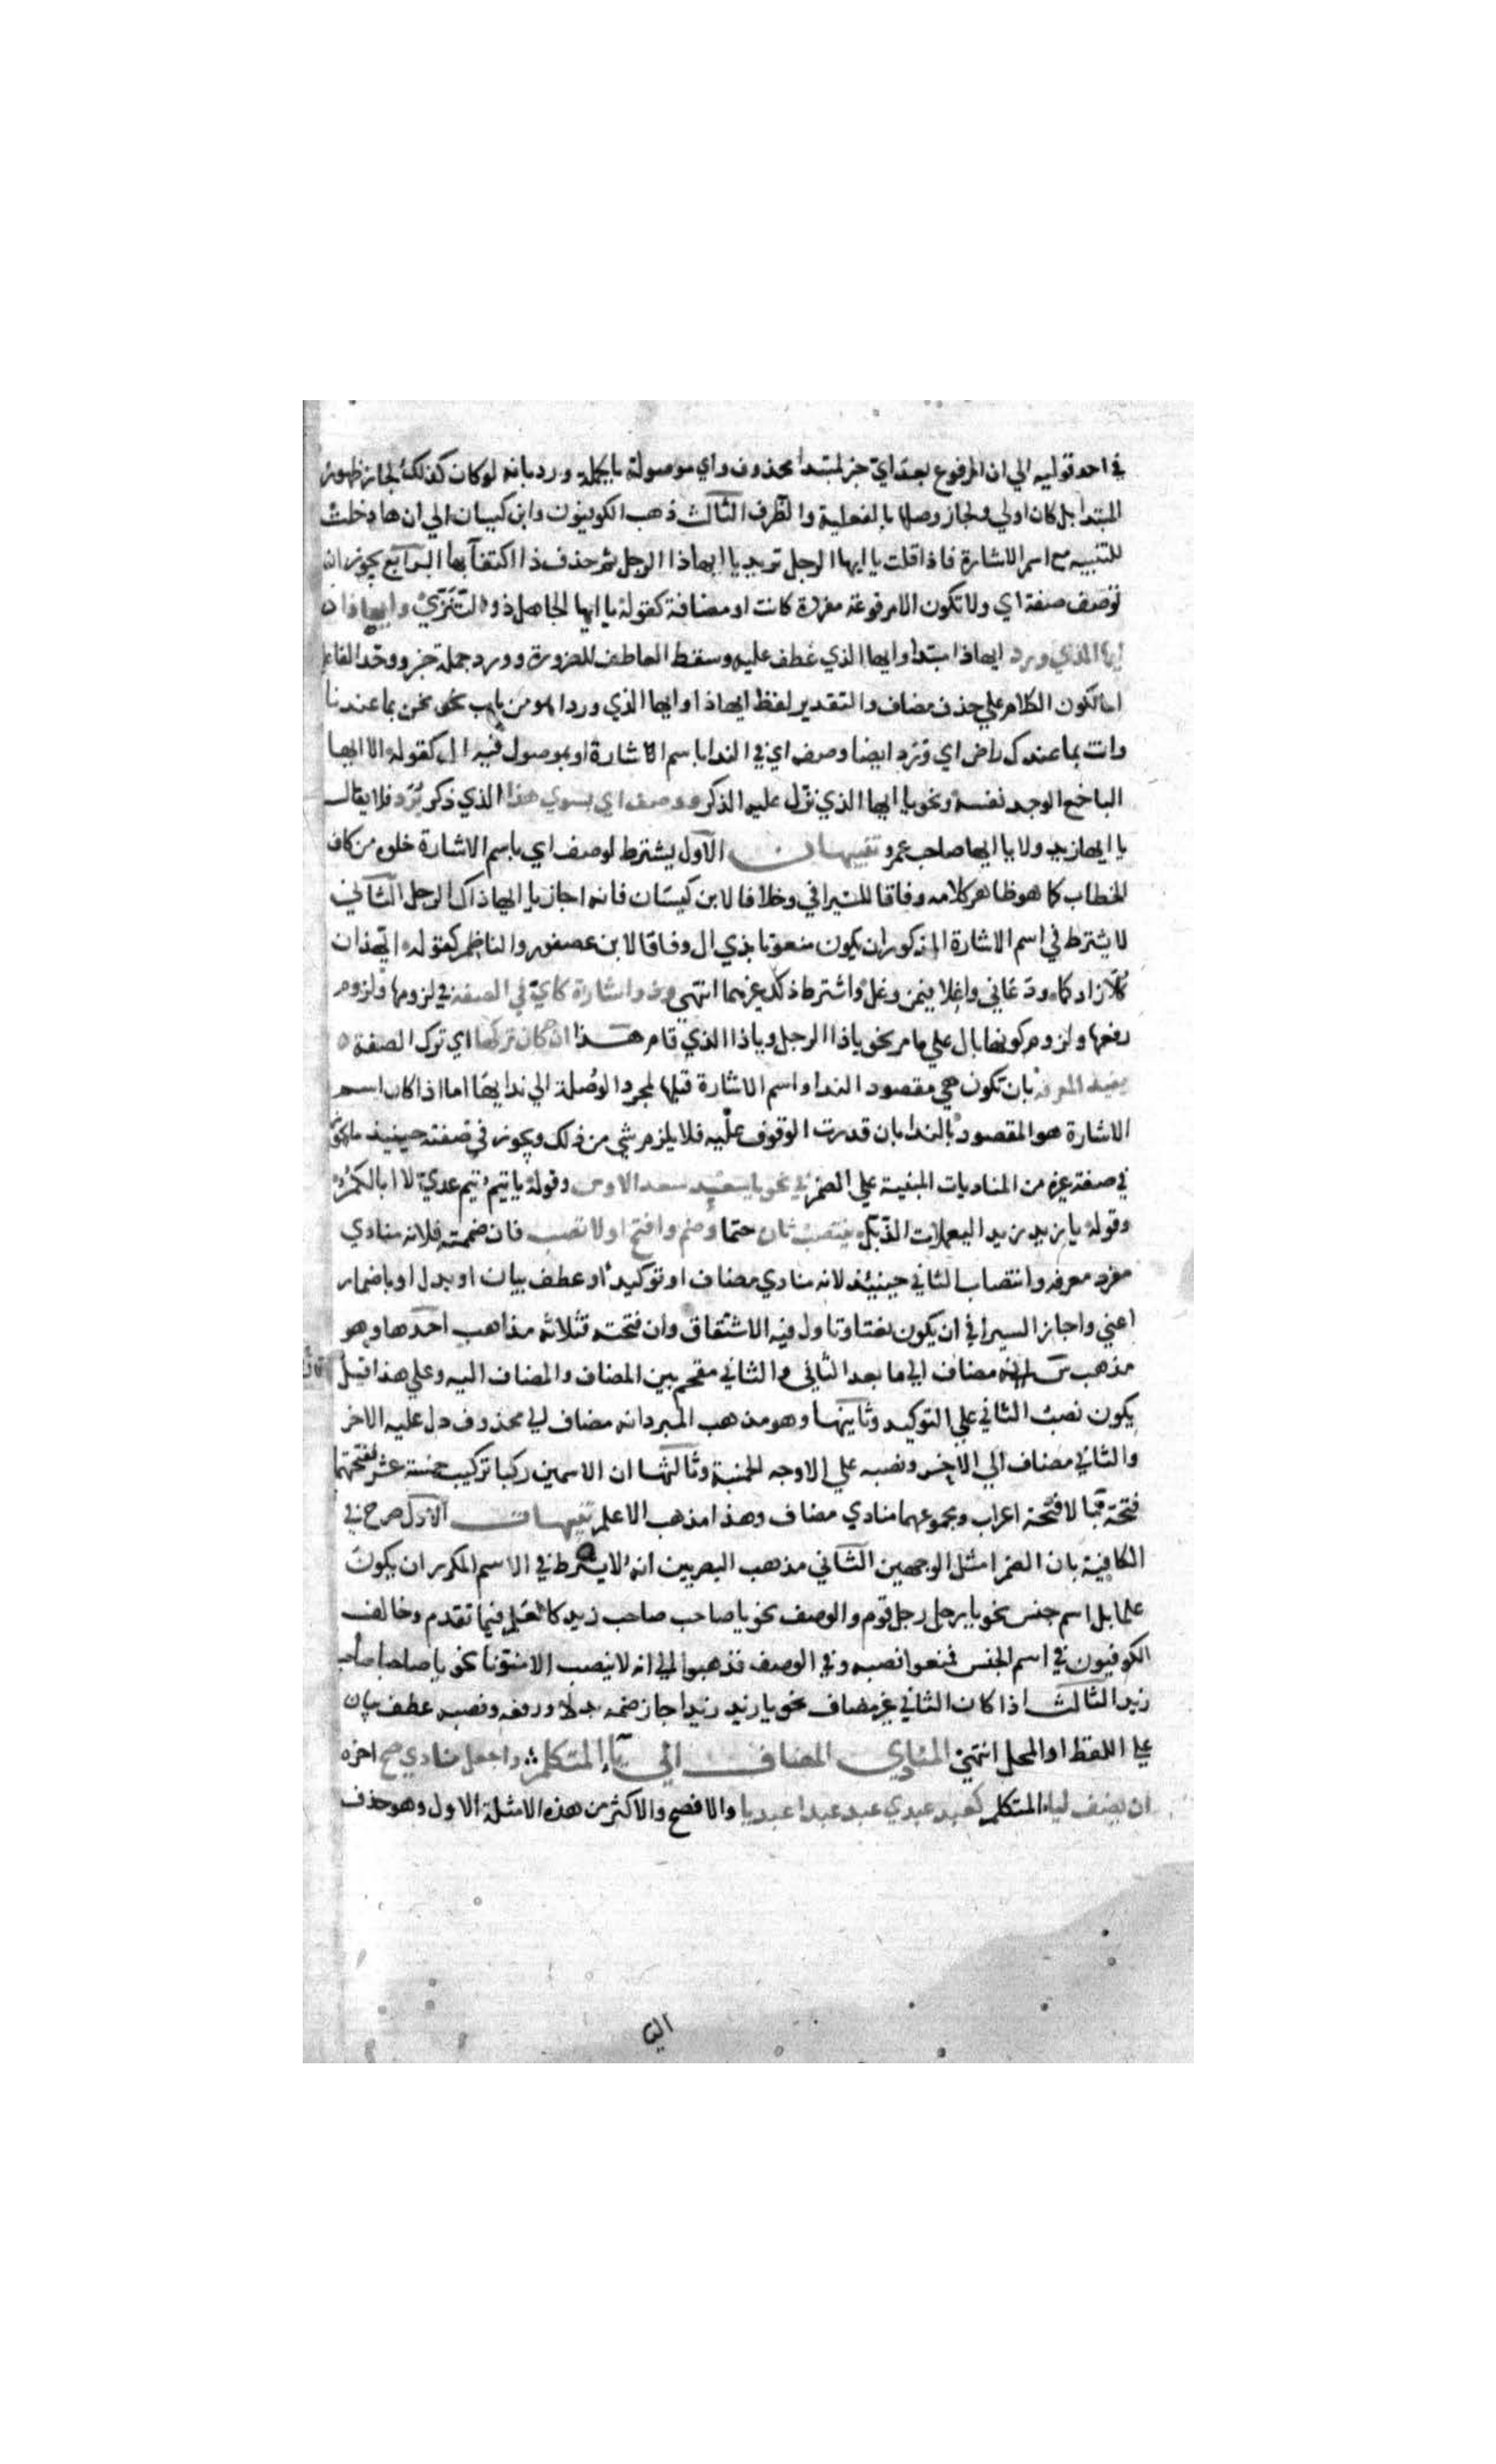 في احد قوليه الي ان المرفوع بعد اي خبر لمبتدا محذوف واي موصولة بالجملة ورد بانه لو كان كذلك لجاز ظهور
المبتدا بل كان اولي ولجاز وصلها بالفعلية والظرف الثالث ذهب الكوفيون وابن كيسان الي ان ها دخلت
للتنبيه مع اسم الاشارة فاذا قلت يا ايها الرجل تريد يا ايهاذا الرجل ثم حذف ذا اكتفآ بها الرابع يجوز ان
توصف صفة اي ولا تكون الا مرفوعة مفردة كانت او مضافة كقوله يا ايها الجاهل ذو التنزي وايهاذا
ايها الذي ورد ايهاذا مبتدا وايها الذي عطف عليه وسقط العاطف للضرورة وورد جملة خبر ووحد الفاعل
اما لكون الكلام علي حذف مضاف والتقدير لفظ ايهاذا وايها الذي ورد او هو من باب نحو نحن بما عندنا
وانت بما عندك راض اي وورد ايضا وصف اي في الندا باسم الاشارة او بموصول فيه ال كقوله الا ايهاذا
الباخع الوجد نفسه ونحو يا ايها الذي نزل عليه الذكر ووصف اي بسوي هذا الذي ذكر يرد فلا يقال
يا ايها زيد ولا يا ايها صاحب عمرو تنبيهان الاول يشترط لوصف اي باسم الاشارة خلوه من كاف
الخطاب كما هو ظاهر كلامه وفاقا للسيرافي وخلافا لابن كيسان فانه اجاز يا ايهاذاك الرجل الثاني
لا يشترط في اسم الاشارة المذكور ان يكون منعوتا بذي ال وفاقا لابن عصفور والناظم كقوله ايهذان
كلا زادكما ودعاني واغلا فيمن وغل واشترط ذلك غيرهما انتهي وذو اشارة كاي في الصفة في لزومها ولزوم
رفعها ولزوم كونها بال علي ما مر نحو ياذا الرجل وياذا الذي قام هذا ان كان تركها اي ترك الصفة
يفيت المعرفه بان تكون هي مقصود الندا واسم الاشارة قبلها لمجرد الوصلة الي ندايها اما اذا كان اسم
الاشارة هو المقصود بالندا بان قدرت الوقوف عليه فلا يلزم شي من ذلك ويجوز في صفته حينيذ ما يجوز
في صفة غيره من المناديات المبنية علي الضم في نحو يا سعد سعد الاوس وقوله يا تيم تيم عدي لا ابا لكم
وقوله يا زيد زيد اليعملات الذبل ينتصب ثان حتما وضم وافتح اولا تصب فان ضممته فلانه منادي
مفرد معرفه وانتصاب الثاني حينيذ لانه منادي مضاف او توكيد او عطف بيان او بدل او باضمار
اعني واجاز السيرافي ان يكون نعتا وتاول فيه الاشتقاق وان فتحته فثلاثه مذاهب احدها وهو
مذهب س انه مضاف الي ما بعد الثاني والثاني مقحم بين المضاف والمضاف اليه وعلي هذا قيل
يكون نصب الثاني علي التوكيد وثانيها وهو مذهب المبرد انه مضاف لي محذوف دل عليه الاخر
والثاني مضاف الي الاخر ونصبه علي الاوجه الخمسة وثالثها ان الاسمين ركبا تركيب خمسة عشر ففتحتهما
فتحة بنا لا فتحة اعراب ومجموعهما منادي مضاف وهذا مذهب الاعلم تنبيهات الاول صرح في
الكافية بان الضم امثل الوجهين الثاني مذهب البصريين انه لا يشترط في الاسم المكرر ان يكون
علما بل اسم جنس نحو يا رجل رجل قوم والوصف نحو يا صاحب صاحب زيد كالعلم فيما تقدم وخالف
الكوفيون في اسم الجنس فمنعوا نصبه وفي الوصف فذهبوا الي انه لا ينصب الا منونا نحو يا صاحبا صاحب
زيد الثالث اذا كان الثاني غير مضاف نحو يا زيد زيد اجاز ضمه بدلا ورفعه ونصبه عطف بيان
علي اللفظ او المحل انتهي المنادي المضاف الي يآء المتكلم واجعل منادي صح اخره
ان يضف ليا المتكلم كعبد عبدي عبد عبدا عبديا والافصح والاكثر من هذه الامثلة الاول وهو حذف
اليا